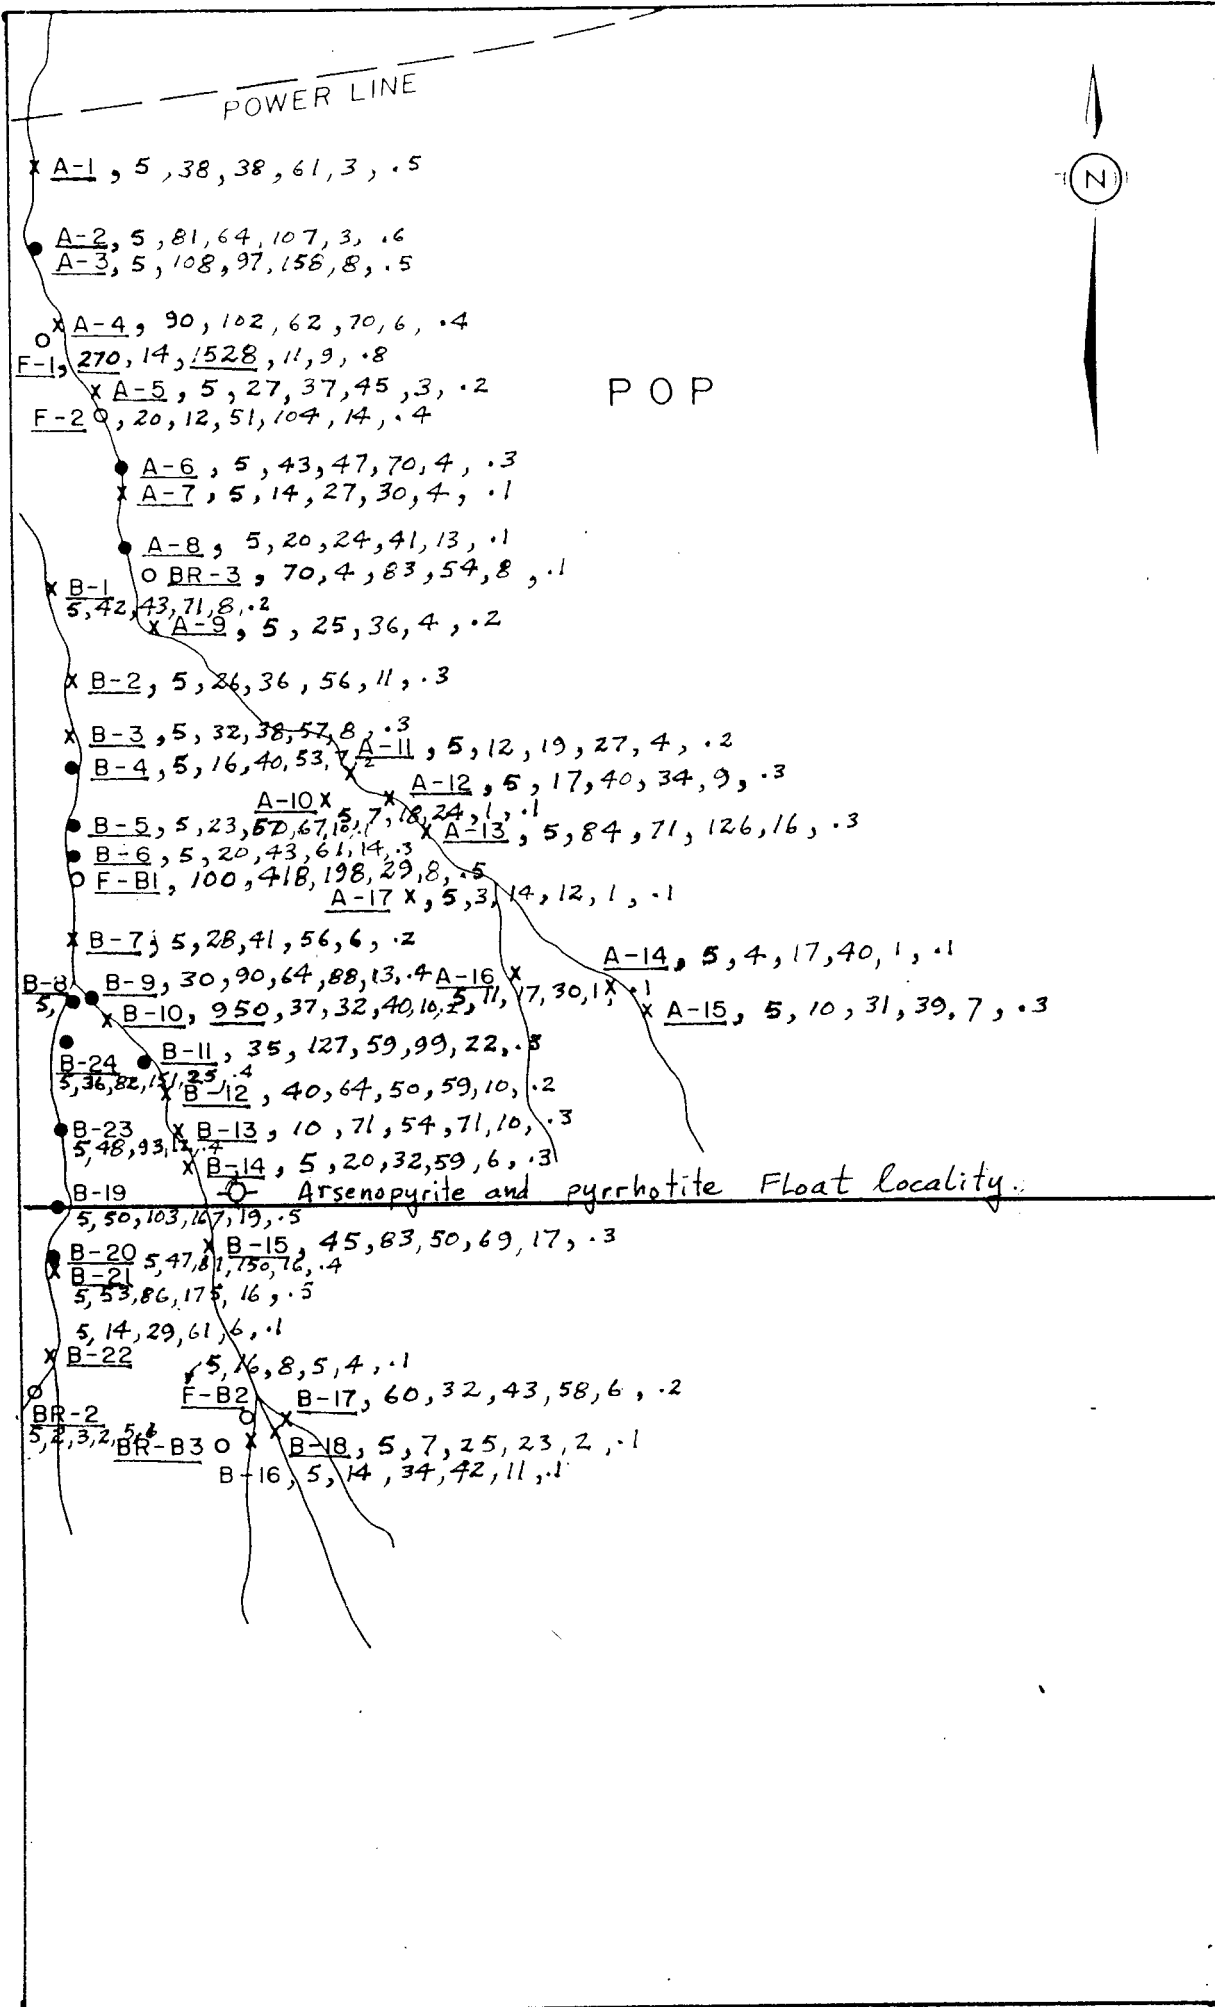 POWER LINE
N
A-1, 5, 38, 38, 61, 3, .5
A-2, 5, 81, 64, 107, 3, .6
A-3, 5, 108, 97, 158, 8, .5
A-4, 90, 102, 62, 70, 6, .4
F-1, 270, 14, 1528, 11, 9, .8
A-5, 5, 27, 37, 45, 3, .2
POP
F-2, 20, 12, 51, 104, 14, .4
A-6, 5, 43, 47, 70, 4, .3
A-7, 5, 14, 27, 30, 4, .1
A-8, 5, 20, 24, 41, 13, .1
BR-3, 70, 4, 83, 54, 8, .1
B-1
5, 42, 43, 71, 8, .2
A-9, 5, 25, 36, 4, .2
B-2, 5, 26, 36, 56, 11, .3
B-3, 5, 32, 38, 57, 8, .3
A-11, 5, 12, 19, 27, 4, .2
B-4, 5, 16, 40, 53, 7, .2
A-12, 5, 17, 40, 34, 9, .3
A-10
5, 7, 18, 24, 1, .1
B-5, 5, 23, 50, 67, 10, .1
A-13, 5, 84, 71, 126, 16, .3
B-6, 5, 20, 43, 61, 14, .3
F-B1, 100, 418, 198, 29, 8, .5
A-17, 5, 3, 14, 12, 1, .1
B-7, 5, 28, 41, 56, 6, .2
A-14, 5, 4, 17, 40, 1, .1
B-8
5,
B-9, 30, 90, 64, 88, 13, .4
A-16
5, 11, 17, 30, 1, .1
B-10, 950, 37, 32, 40, 10, .2
A-15, 5, 10, 31, 39, 7, .3
B-11, 35, 127, 59, 99, 22, .3
B-24
5, 36, 82, 151, 25, .4
B-12, 40, 64, 50, 59, 10, .2
B-23
5, 48, 93, 12, .4
B-13, 10, 71, 54, 71, 10, .3
B-14, 5, 20, 32, 59, 6, .3
Arsenopyrite and pyrrhotite Float locality.
B-19
5, 50, 103, 167, 19, .5
B-15, 45, 83, 50, 69, 17, .3
B-20 5, 47, 81, 150, 16, .4
B-21
5, 53, 86, 175, 16, .5
5, 14, 29, 61, 6, .1
B-22
5, 16, 8, 5, 4, .1
F-B2
B-17, 60, 32, 43, 58, 6, .2
BR-2
5, 2, 3, 2, 5,
BR-B3
B-18, 5, 7, 25, 23, 2, .1
B-16, 5, 14, 34, 42, 11, .1